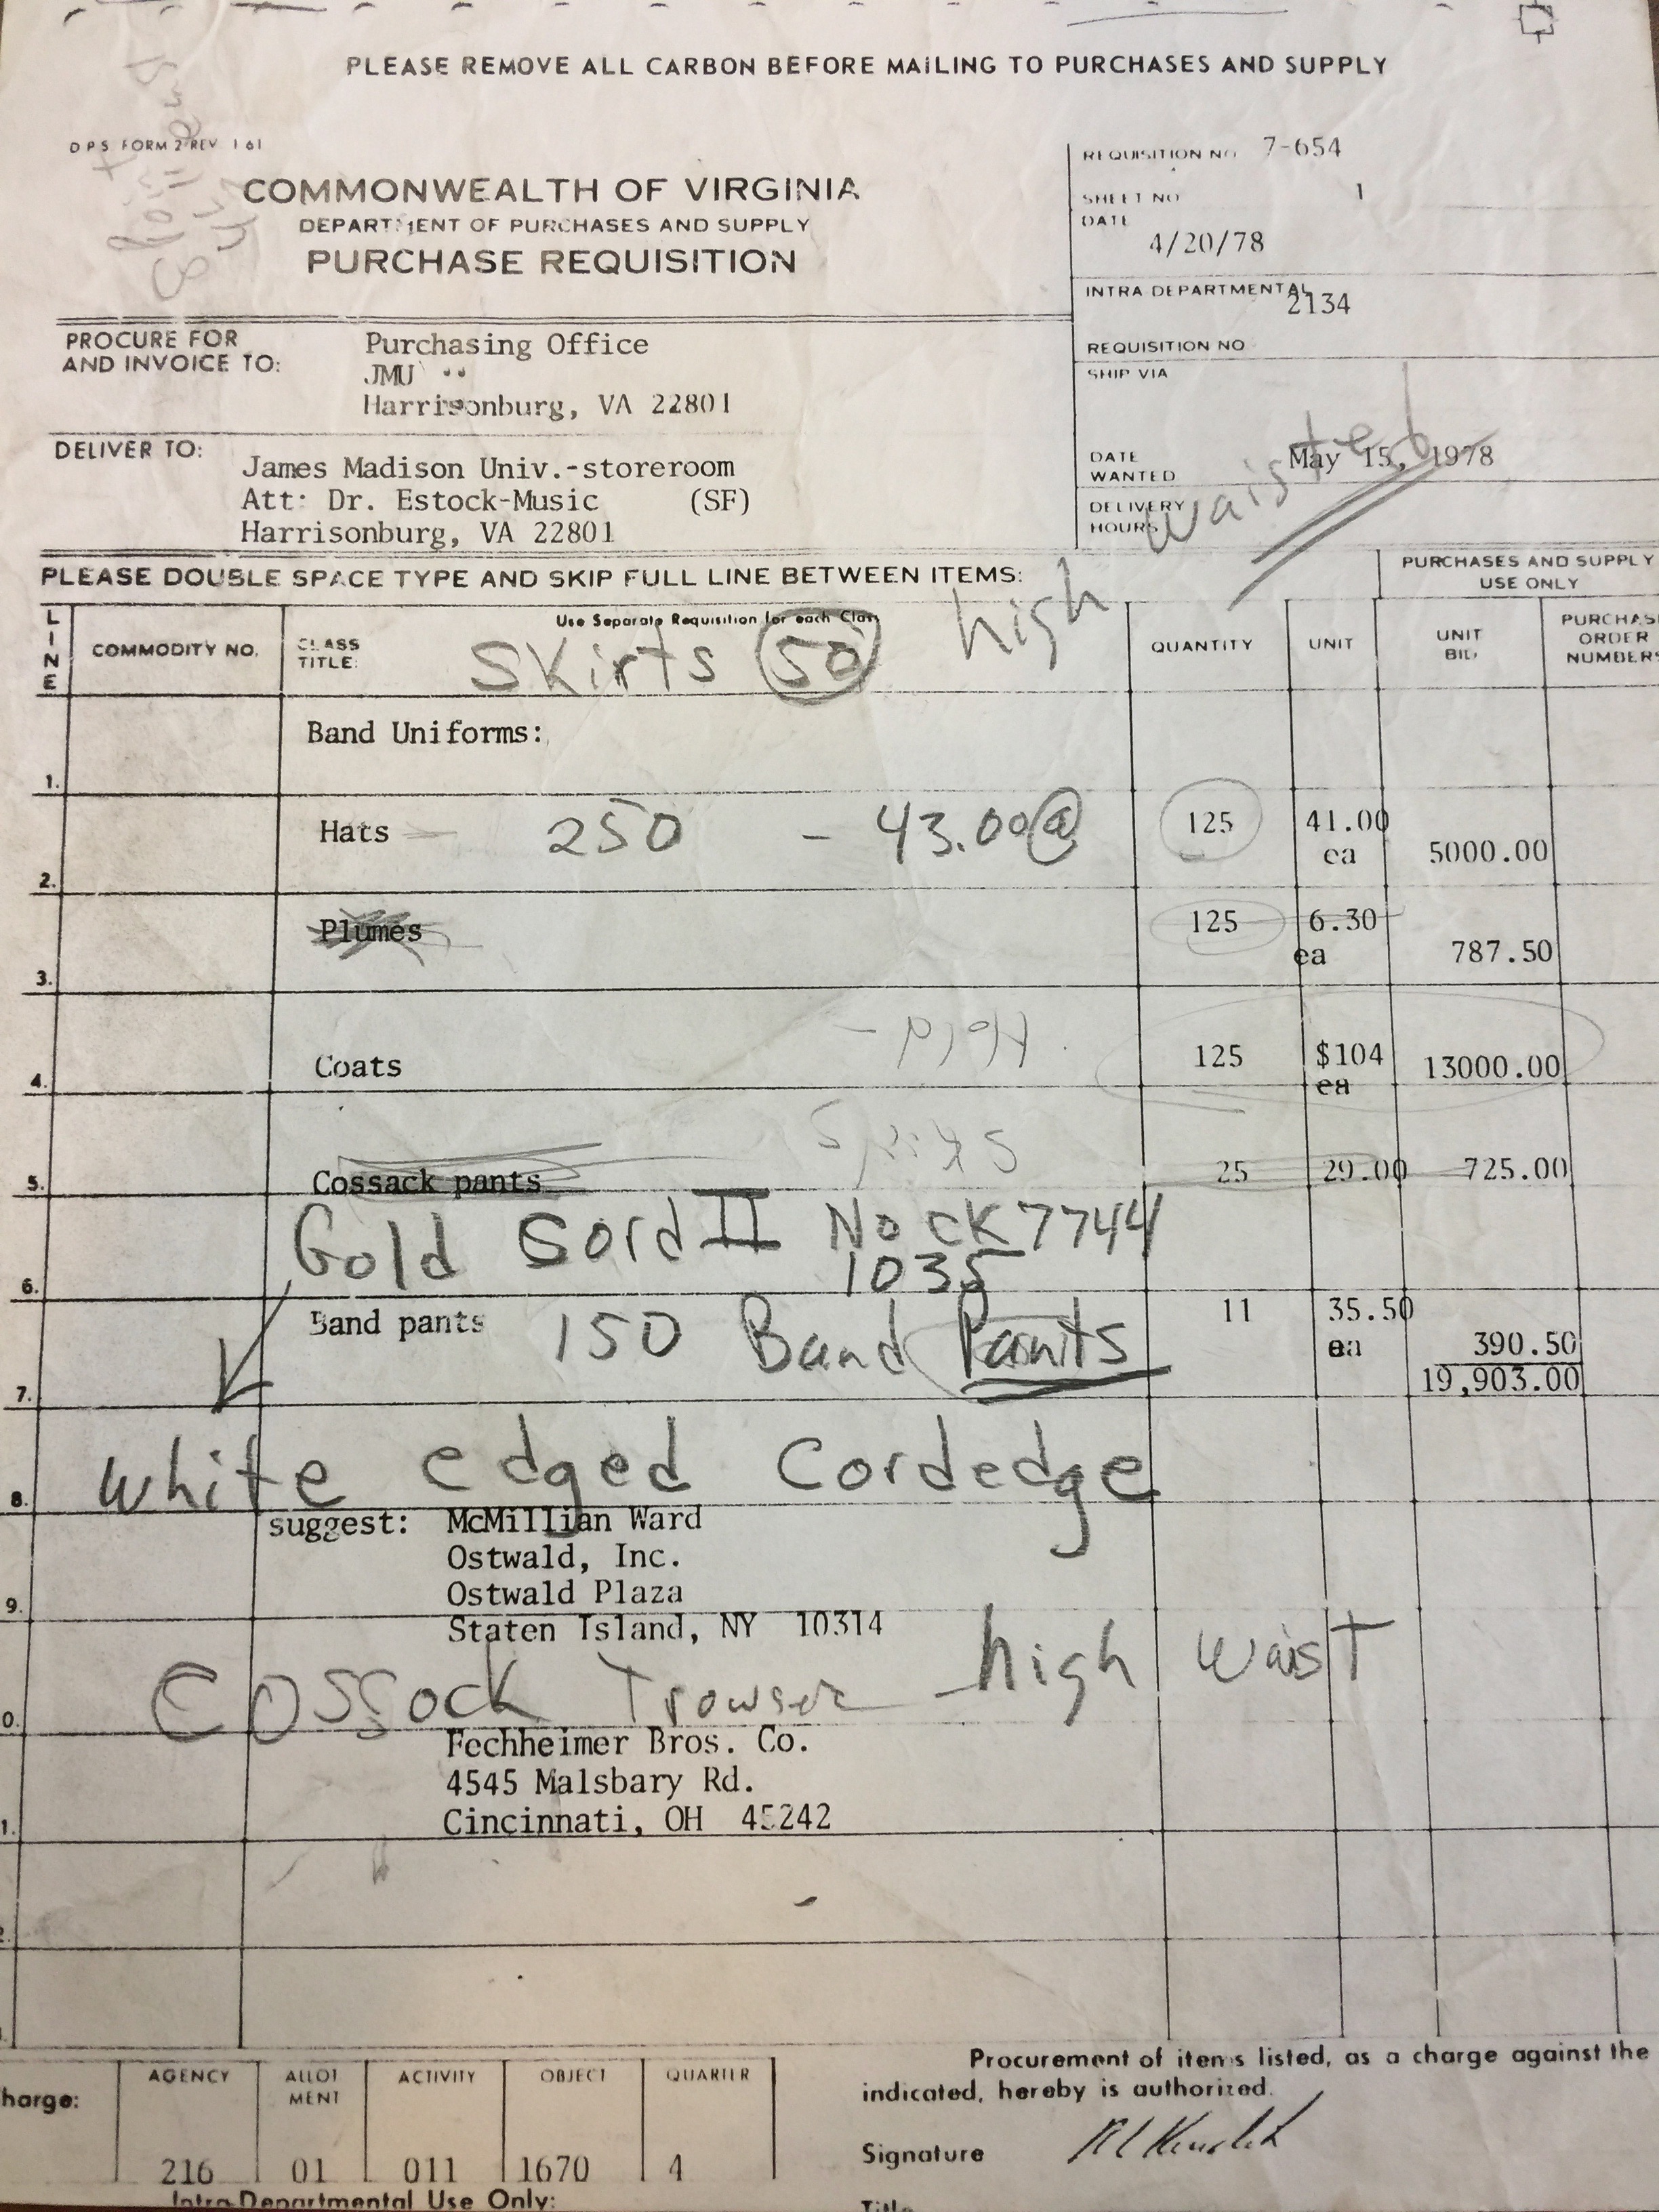 PLEASE REMOVE ALL CARBON BEFORE MAILING TO PURCHASES AND SUPPLY
DPS FORM 2 REV 1 61
COMMONWEALTH OF VIRGINIA
DEPARTMENT OF PURCHASES AND SUPPLY
PURCHASE REQUISITION
REQUISITION NO 7-654
SHEET NO 1
DATE
4/20/78
INTRA DEPARTMENTAL
2134
REQUISITION NO
SHIP VIA
PROCURE FOR
AND INVOICE TO:
Purchasing Office
JMU
Harrisonburg, VA 22801
DELIVER TO:
James Madison Univ.-storeroom
Att: Dr. Estock-Music (SF)
Harrisonburg, VA 22801
DATE
WANTED
May 15, 1978
DELIVERY
HOURS
high waisted
PLEASE DOUBLE SPACE TYPE AND SKIP FULL LINE BETWEEN ITEMS:
PURCHASES AND SUPPLY
USE ONLY
LINE
COMMODITY NO.
CLASS
TITLE:
Use Separate Requisition for each Class
Skirts 50
QUANTITY
UNIT
UNIT
BID
PURCHASE
ORDER
NUMBERS
Band Uniforms:
1.
Hats 250 - 43.00@ 125 41.00
ea 5000.00
2.
Plumes 125 6.30
ea 787.50
3.
Coats 125 $104 13000.00
ea
4.
Cossack pants 25 29.00 725.00
5.
Gold Sord II No CK7744
1035
6.
Band pants 150 Band Pants 11 35.50
ea 390.50
19,903.00
7.
white edged Cordedge
8.
suggest: McMillian Ward
Ostwald, Inc.
Ostwald Plaza
9.
Staten Island, NY 10314
Cossock Trowser - high waist
0.
Fechheimer Bros. Co.
4545 Malsbary Rd.
Cincinnati, OH 45242
1.
harge:
AGENCY ALLOT
MENT ACTIVITY OBJECT QUARTER
216 01 011 1670 4
Procurement of items listed, as a charge against the
indicated, hereby is authorized.
Signature
Title
Intra-Departmental Use Only: